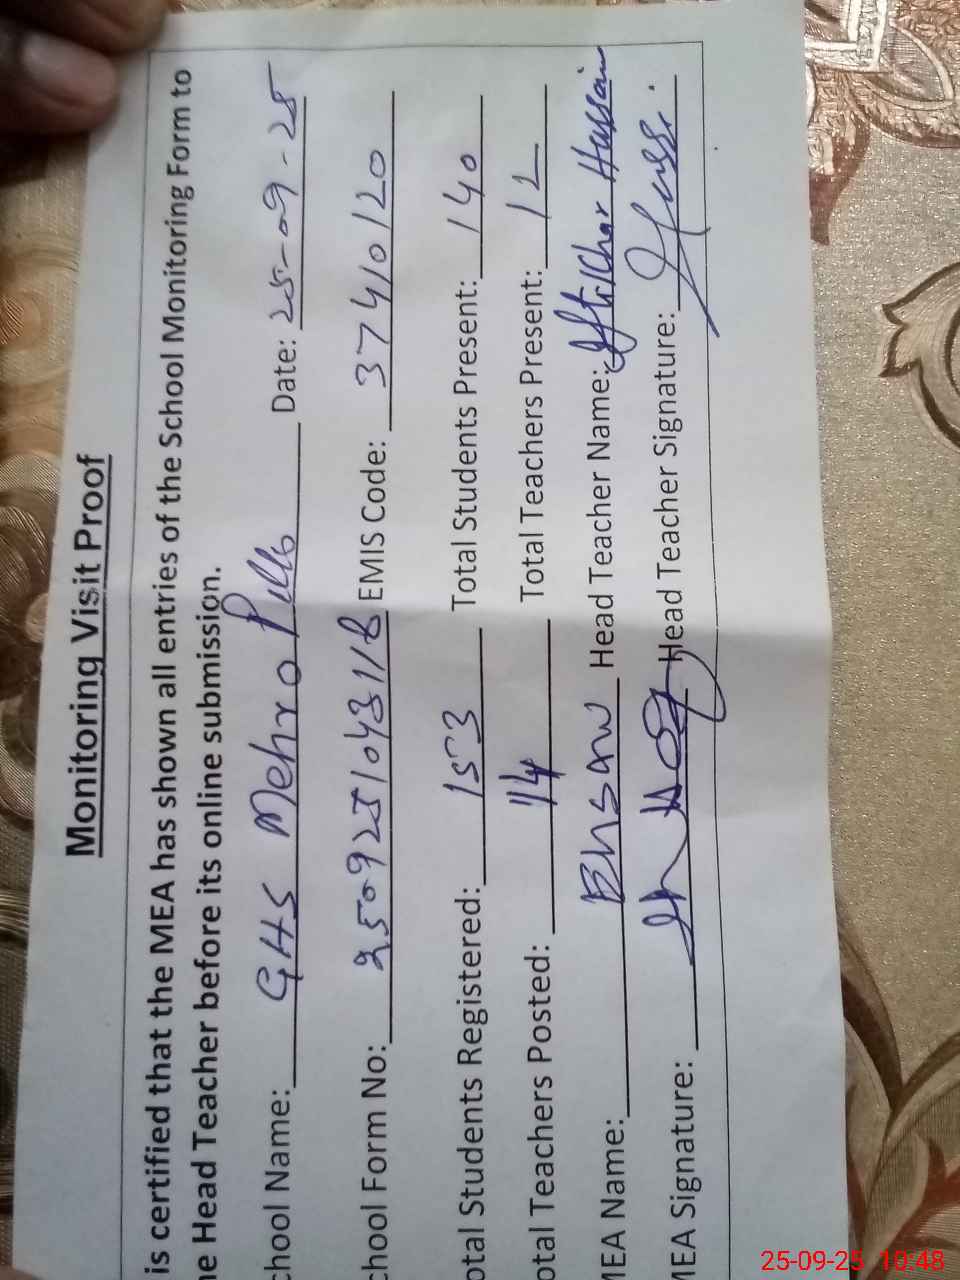 Monitoring Visit Proof
is certified that the MEA has shown all entries of the School Monitoring Form to
he Head Teacher before its online submission.
chool Name: GHS Mehro Pello Date: 25-09-25
chool Form No: 2509251043118 EMIS Code: 37410120
otal Students Registered: 153 Total Students Present: 140
otal Teachers Posted: 14 Total Teachers Present: 12
MEA Name: Ehsan Head Teacher Name: Iftikhar Hussain
MEA Signature: Head Teacher Signature:
25-09-25 10:48